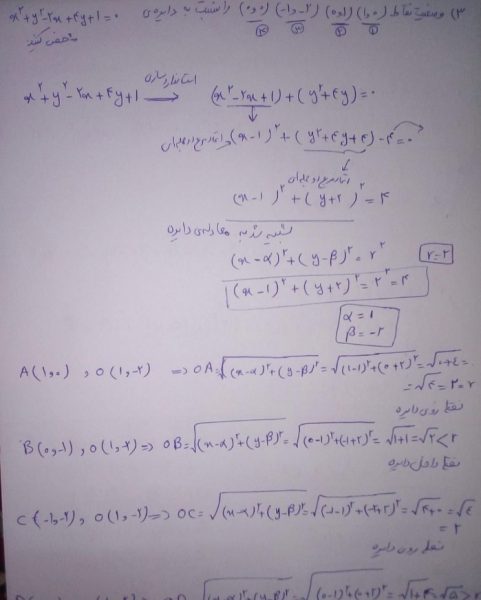 ۳) وضعیت نقاط (۱و۰) (۱و۰) (-۱و-۲) (۰و۰) را نسبت به دایره‌ی x²+y²-۲x+۴y+۱=۰
① ② ③ ④ مشخص کنید
x²+y²-۲x+۴y+۱ استانداردسازی → (x²-۲x+۱)+(y²+۴y)=۰
اتحاد مربع دو جمله‌ای → (x-۱)²+(y²+۴y+۴)-۴=۰
اتحاد مربع دو جمله‌ای
(x-۱)²+(y+۲)²=۴
تشبیه شد به معادله‌ی دایره
(x-α)²+(y-β)²=r² r=۲
(x-۱)²+(y+۲)²=۲²=۴
α=۱
β=-۲
A(۱,۰) , O(۱,-۲) ⇒ OA=√(x-α)²+(y-β)²=√(۱-۱)²+(۰+۲)²=√۰+٤=
=√۴=۲=r
نقطه روی دایره
B(۰,-۱) , O(۱,-۲) ⇒ OB=√(x-α)²+(y-β)²=√(۰-۱)²+(-۱+۲)²=√۱+۱=√۲<۲
نقطه داخل دایره
C(-۱,-۲) , O(۱,-۲) ⇒ OC=√(x-α)²+(y-β)²=√(-۱-۱)²+(-۲+۲)²=√۴+۰=√٤
=۲
نقطه روی دایره
=√(x-α)²+(y-β)²=√(۰-۱)²+(۰+۲)²=√۱+۴=√۵>۲